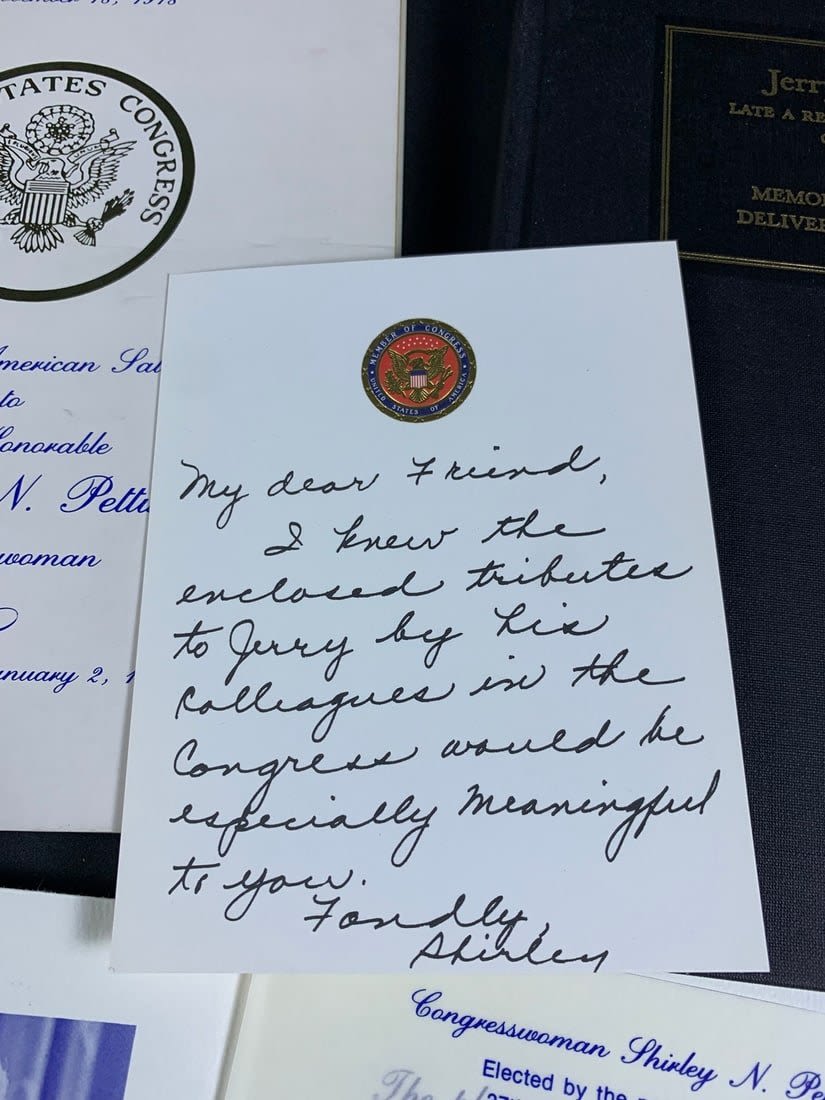 STATES CONGRESS
American
to
Honorable
N.
January 2,
Jerry
LATE A
DELIVERED
MEMBER OF CONGRESS
UNITED STATES OF AMERICA
My dear Friend,
I knew the
enclosed tributes
to Jerry by his
Colleagues in the
Congress would be
especially meaningful
to you.
Fondly,
Shirley
Congresswoman Shirley N.
Elected by the